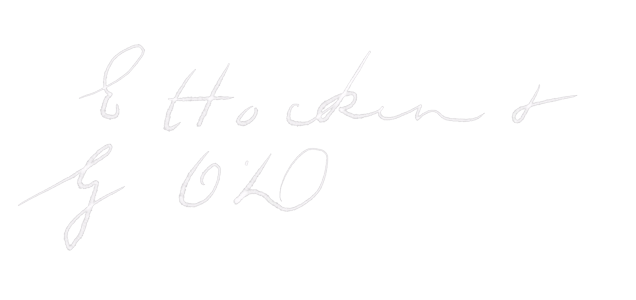 E Hockin &
G Old